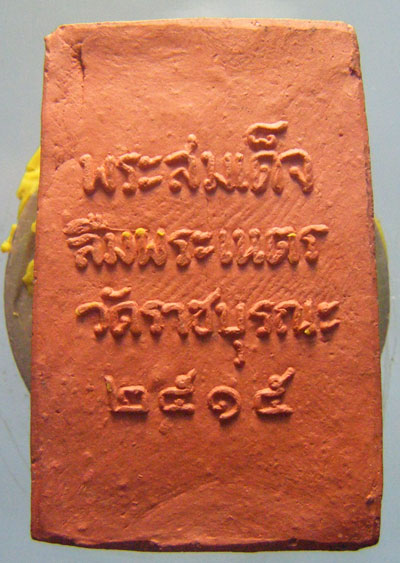 พระสมเด็จ
ลืมพระเนตร
วัดราชบุรณะ
๒๕๑๕